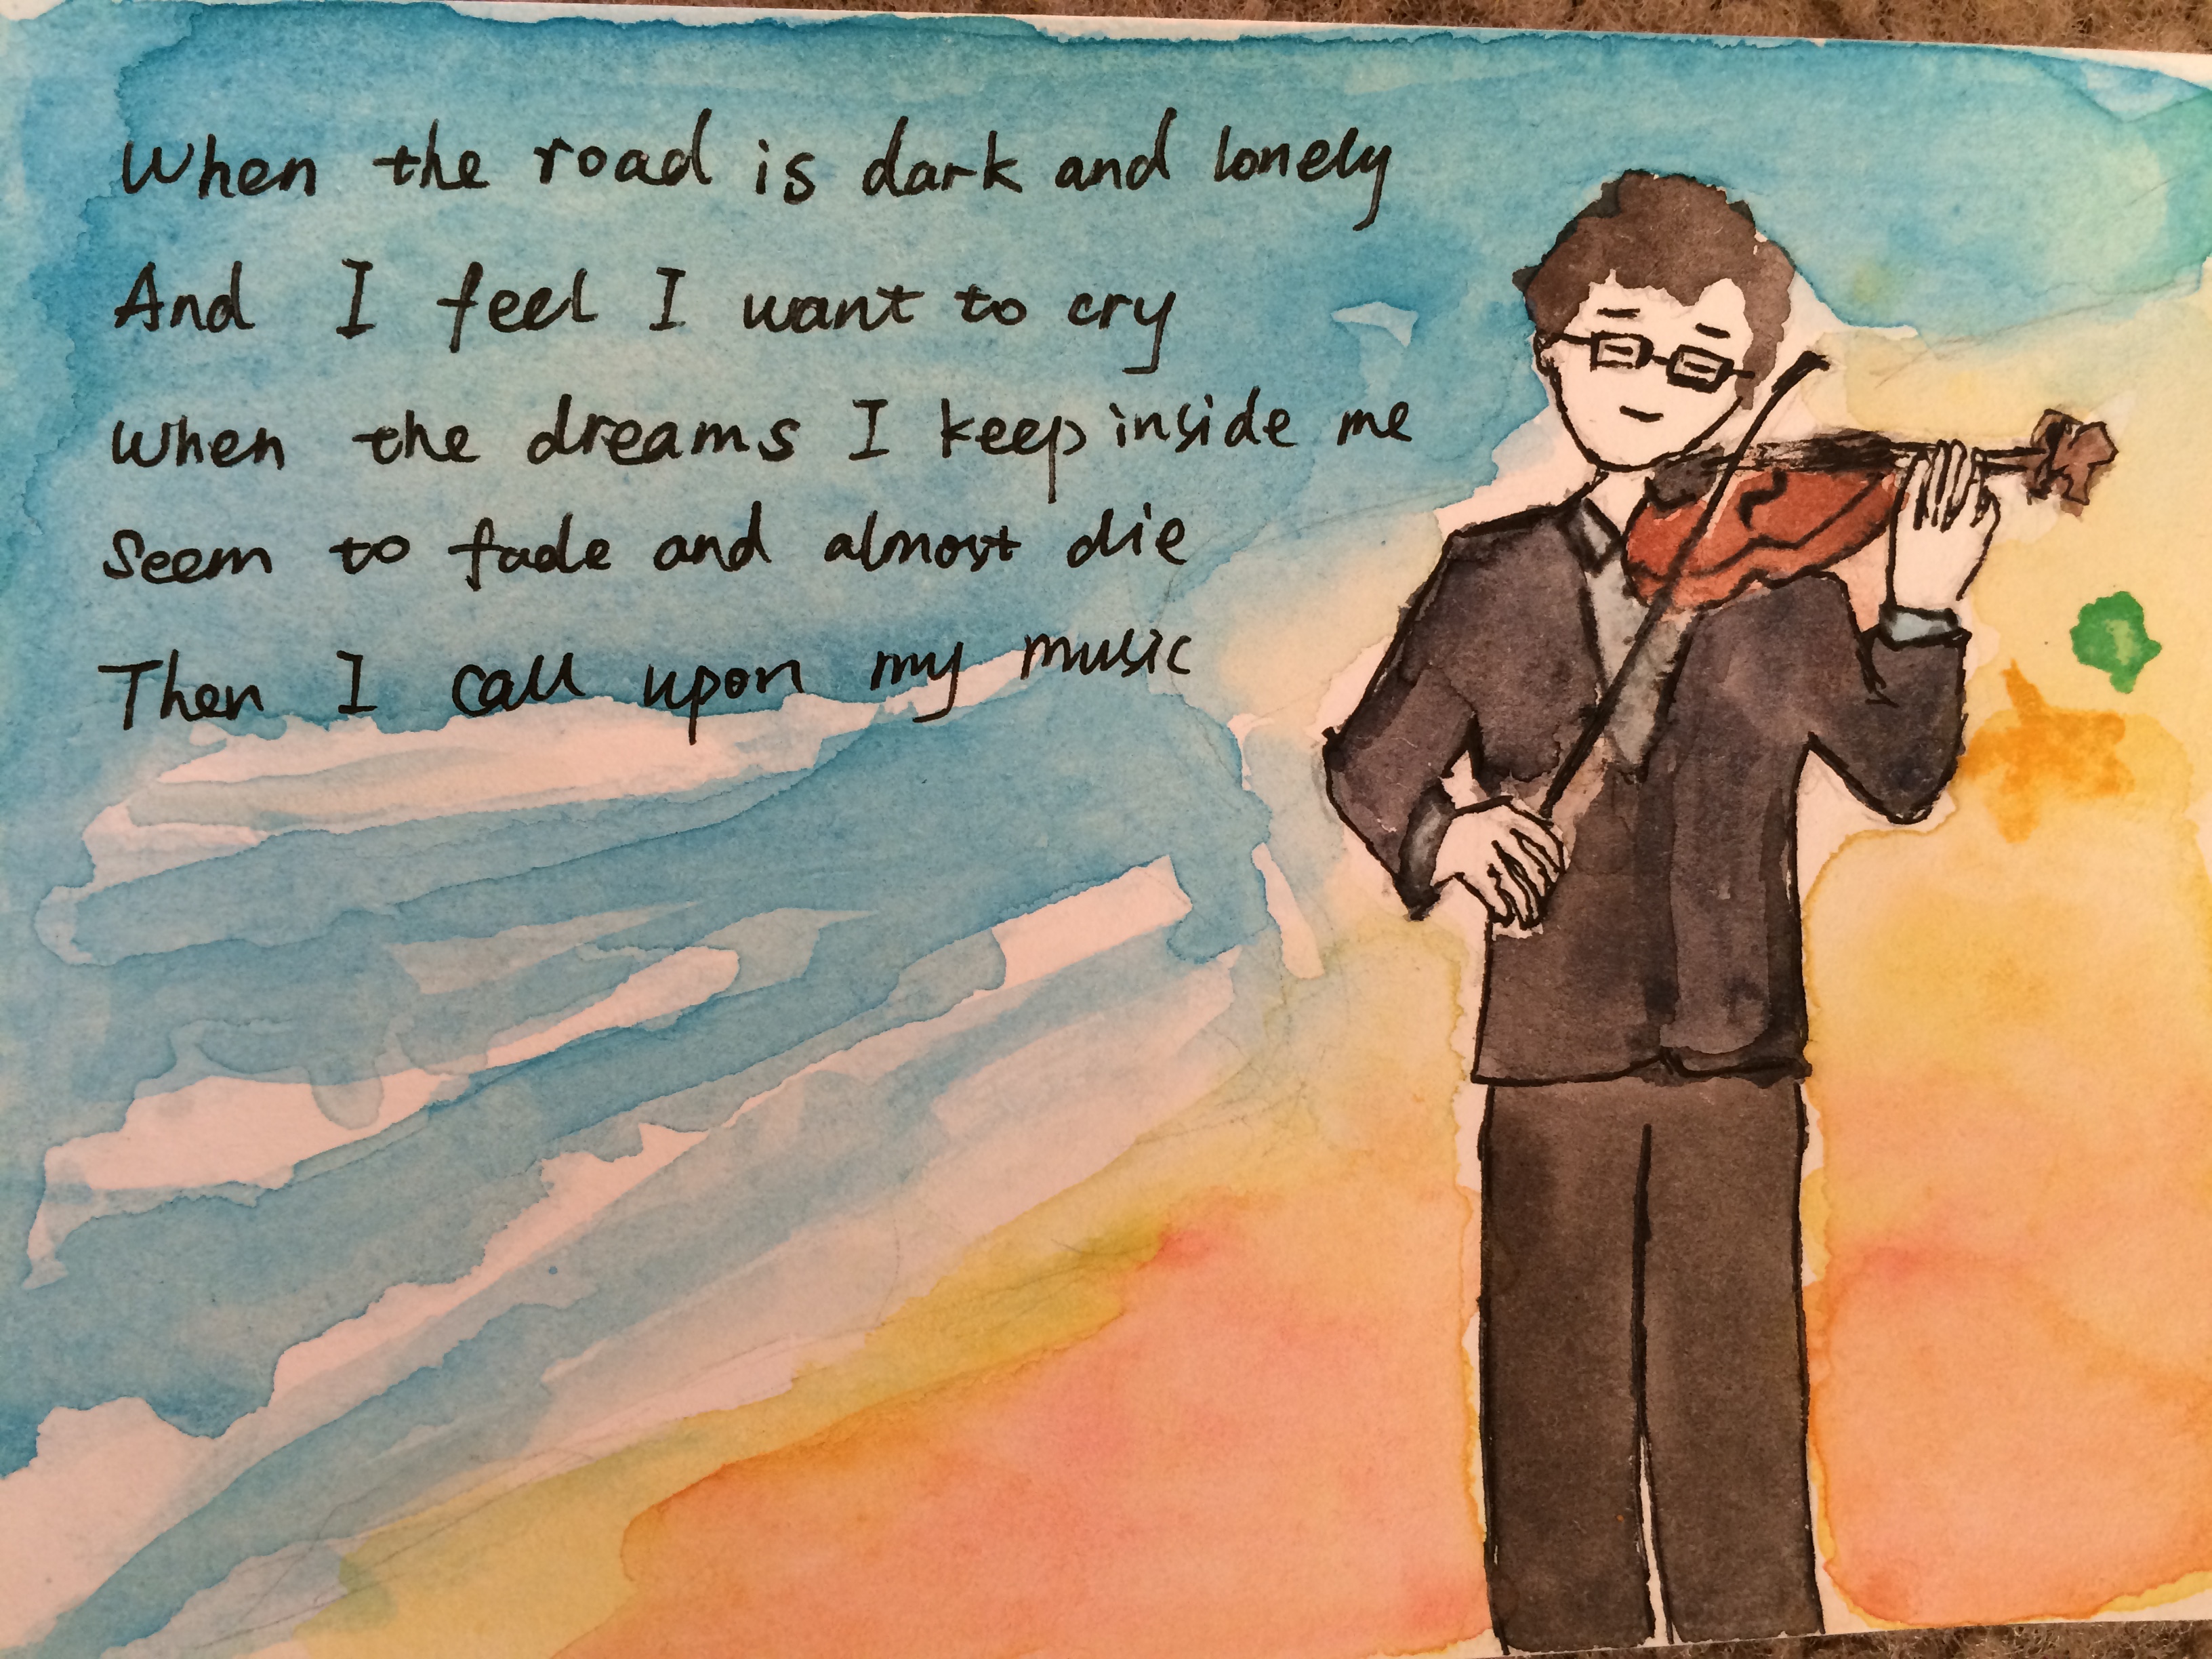 When the road is dark and lonely
And I feel I want to cry
When the dreams I keep inside me
Seem to fade and almost die
Then I call upon my music